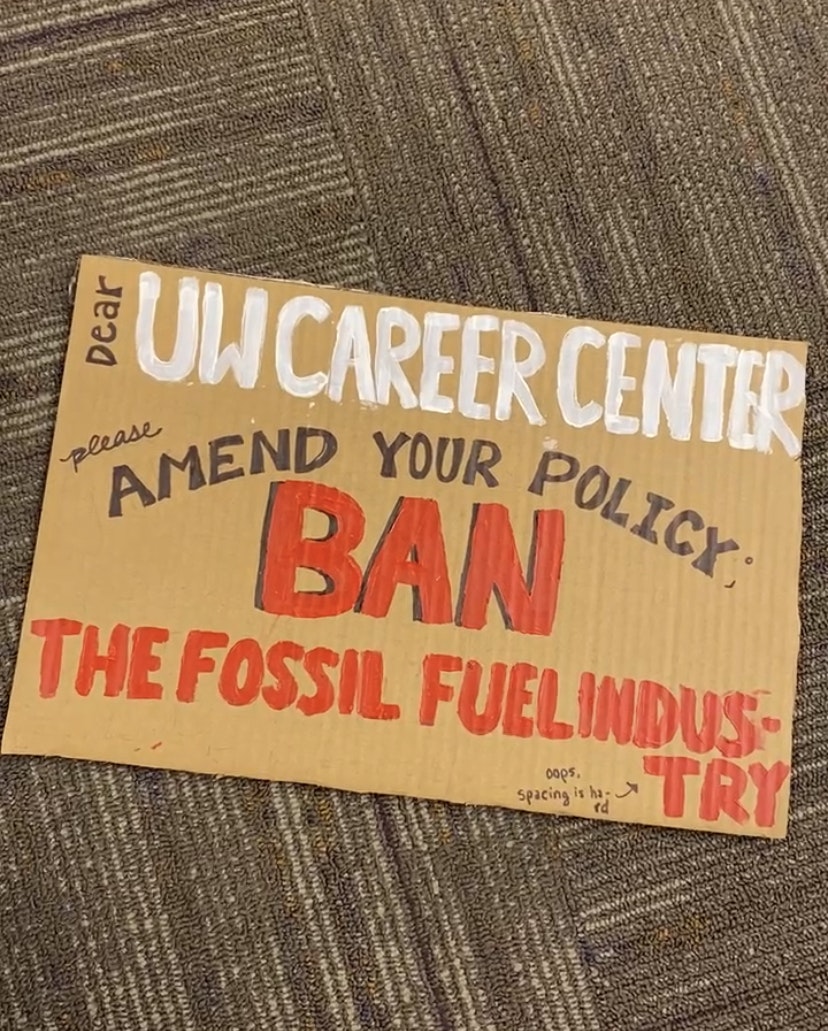 Dear
UW CAREER CENTER
please
AMEND YOUR POLICY:
BAN
THE FOSSIL FUEL INDUS-
TRY
oops,
spacing is ha-
rd